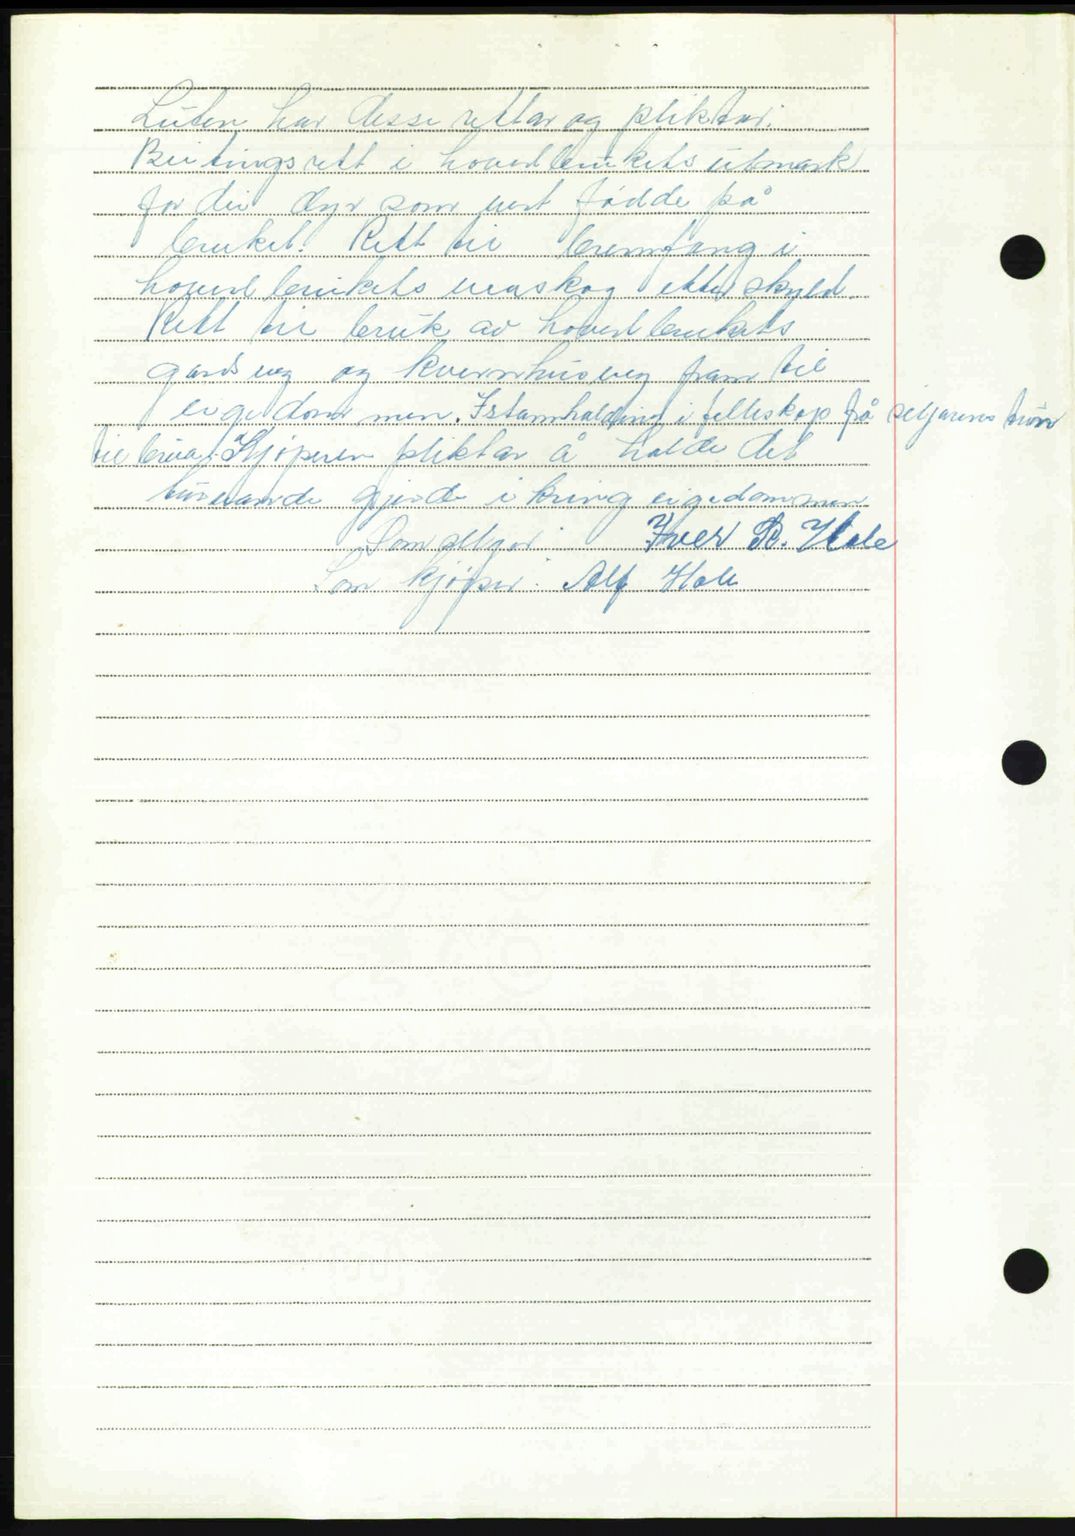 Luten har desse rettar og pliktar:
Beitingsrett i hovudbrukets utmark
for dei dyr som vert fødde på
bruket. Rett til brennfang i
hovudbrukets utaskog etter skyld.
Rett til bruk av hovudbrukets
gardsveg og kvernhusveg fram til
eigedommen. Istandhalding i felleskap frå seljarens tun
til Kjøperen pliktar å halde det
tilverande gjerde ikring eigedommen
Som seljar: Iver R. Hole
Som kjøper: Alf Hole